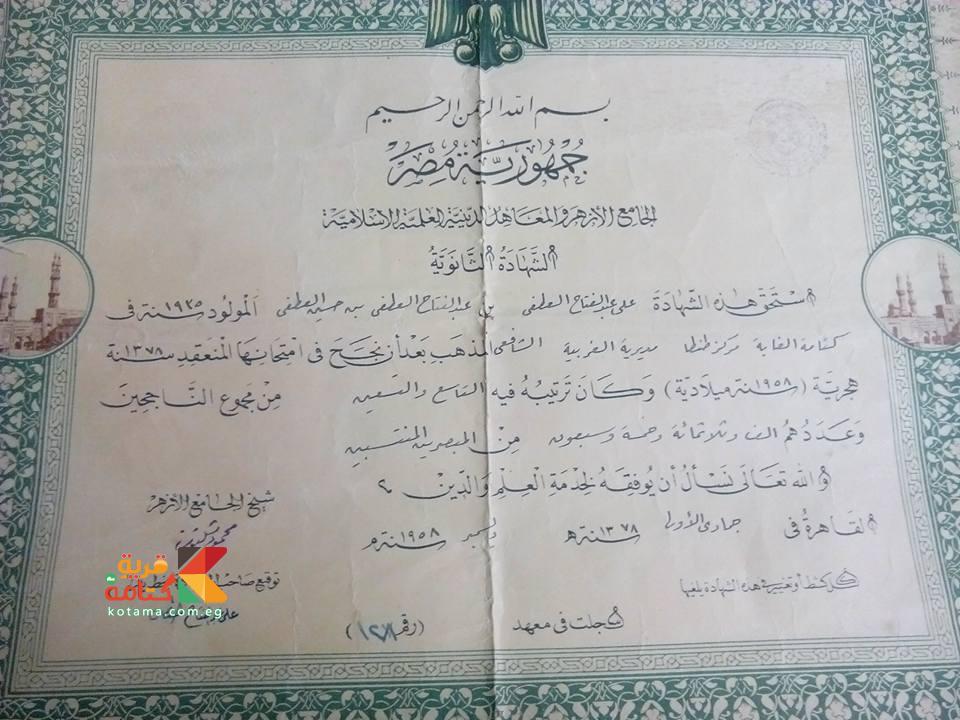 بسم الله الرحمن الرحيم
جمهورية مصر
الجامع الأزهر والمعاهد الدينية العلمية الإسلامية
الشهادة الثانوية
استحق هذه الشهادة على عبد الفتاح العطفى بن عبد الفتاح العطفى بن حسين العطفى المولود سنة ١٩٣٥ فى
كتامة الغابة مركز طنطا مديرية الغربية الشافعى المذهب بعد أن نجح فى امتحانها المنعقد سنة ١٣٧٨
هجرية (سنة ١٩٥٨ ميلادية) وكان ترتيبه فيه التاسع والتسعين من مجموع الناجحين
وعددهم الف وثلاثمائة وخمسة وسبعون من المبصرين المنتسبين
والله تعالى نسأل أن يوفقه لخدمة العلم والدين
القاهرة فى جمادى الأولى سنة ١٣٧٨ هـ ديسمبر سنة ١٩٥٨ م
شيخ الجامع الأزهر
كل كشط أو تغيير فى هذه الشهادة يلغيها
توقيع صاحب
سجلت فى معهد (رقم ١٢٨١)
قرية
كتامة
kotama.com.eg